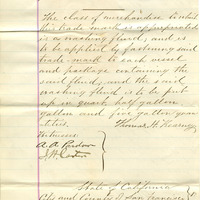 The class of merchandise to which
this trade mark is appropriated
is a washing fluid, and is
to be applied by fastening said
trade-mark to each vessel
and package containing the
said fluid, and the said
washing fluid is to be put
up in quart, half gallon
gallon and five gallon quan-
tities. Thomas H.
Witnesses
A. A.
State of California
City and County of San Francisco